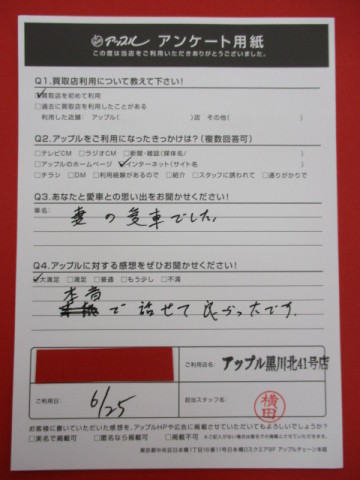 アップル アンケート用紙
この度は当店をご利用いただきありがとうございました。
Q1.買取店利用について教えて下さい!
☑買取店を初めて利用
□過去に買取店を利用したことがある
利用した店舗: アップル( )店 その他( )
Q2.アップルをご利用になったきっかけは?(複数回答可)
□テレビCM □ラジオCM □新聞・雑誌(媒体名/ )
□アップルのホームページ ☑インターネット(サイト名 )
□チラシ □DM □利用経験があるので □紹介 □スタッフに誘われて □通りがかりで
Q3.あなたと愛車との思い出をお聞かせください!
車名:
妻の愛車でした。
Q4.アップルに対する感想をぜひお聞かせください!
☑大満足 □満足 □普通 □もう少し □不満
本音で話せて良かったです。
ご利用店名: アップル黒川北41号店
ご利用日: 6/25
担当スタッフ名: 横田
お客様に書いていただいた感想を、アップルHPや広告に掲載させていただいてもよろしいでしょうか?
□実名で掲載可 □匿名なら掲載可 □掲載不可 ※ご記入がない場合は匿名での掲載とさせていただきます。
東京都中央区日本橋1丁目16番11号日本橋Dスクエア9F アップルチェーン本部